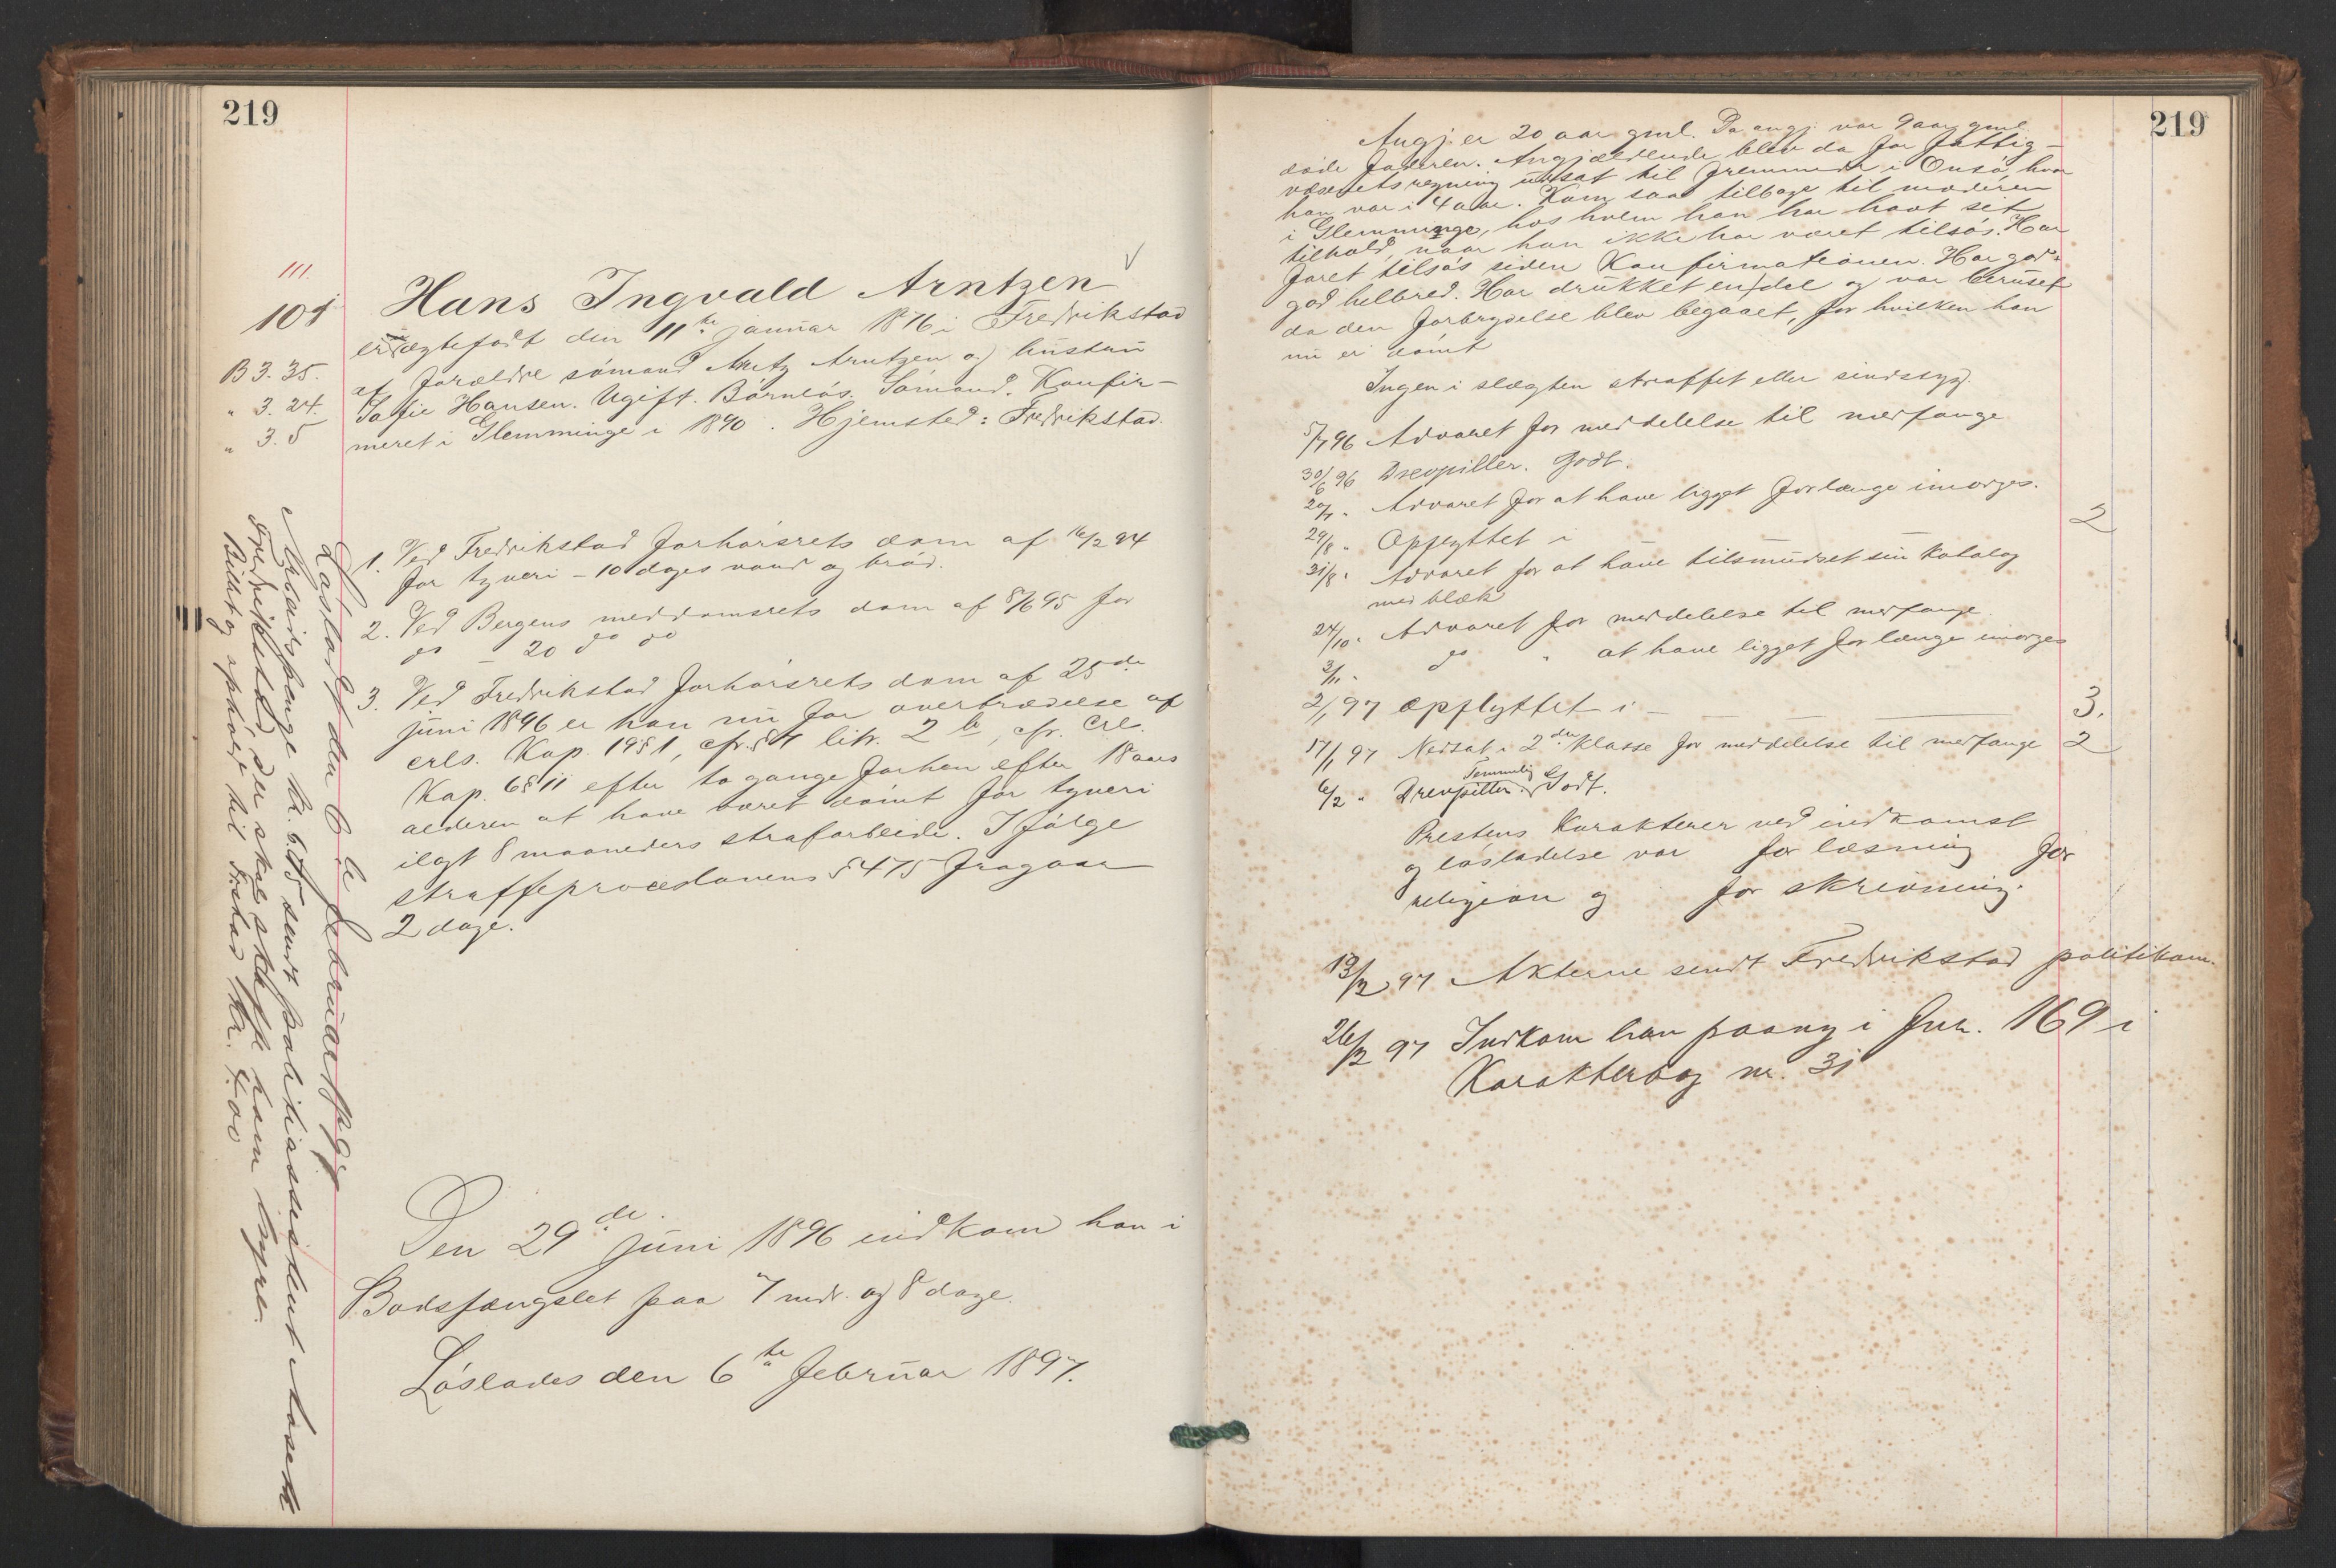 219
111.
101
B 3. 35.
" 3. 24.
" 3. 5
Hans Ingvald Arntzen
er ægtefødt den 11te januar 1876 i Fredrikstad
af forældre sømand Arntz Arntzen og hustru
Sofie Hansen. Ugift. Børnløs. Sømand. Konfir-
meret i Glemminge i 1890. Hjemsted: Fredrikstad.
1. Ved Fredrikstad forhørsrets dom af 16/2 94
for tyveri – 10 dages vand og brød.
2. Ved Bergens meddomsrets dom af 8/6 95 for
do – 20 do do
3. Ved Fredrikstad forhørsrets dom af 25de
juni 1896 er han nu for overtrædelse af
crls. Kap. 19 § 1, cfr. litr. 2 b, cfr. crl.
Kap. 6 § 11 efter to gange forhen efter 18 aars
alderen at have været dømt for tyveri
ilagt 8 maaneders strafarbeide. I følge
straffeproceslovens § 475 fragaar
2 dage.
Den 29de juni 1896 indkom han i
Bodsfængslet paa 7 mdr. og 8 dage.
Løslades den 6te februar 1897.
Løsladt den 6te februar 1897
Arbeidspenge kr. 6.75 sendt politiassistent Aaseth
Fredrikstad, der skal skaffe ham hyre.
Billet og ophold til Frstad kr. 4.00
219
Angj. er 20 aar gml. Da angj. var 9 aar gml.
døde faderen. Angjældende blev da for fattig-
væsenets regning udsat til fremmede i Onsø, hvor
han var i 4 aar. Kom saa tilbage til moderen
i Glemminge, hos hvem han har havt sit
tilhold, naar han ikke har været tilsøs. Har
faret tilsøs siden Konfirmationen. Har god
god helbred. Har drukket endel og var beruset
da den forbrydelse blev begaaet, for hvilken han
nu er dømt
Ingen i slægten straffet eller sindssyg.
5/7 96 Advaret for meddelelse til medfange
30/6 96 Drevpiller. Godt.
20/7 " Advaret for at have ligget for længe imorges.
29/8 " Opflyttet i 2
31/8 " Advaret for at have tilsmudset sin katalog
med blæk
24/10 " Advaret for meddelelse til medfange.
3/11 " do " at have ligget for længe imorges
2/1 97 Opflyttet i – 3.
17/1 97 Nedsat i 2den klasse for meddelelse til medfange 2
6/2 " Drevpiller. Temmelig Godt.
Prestens Karakterer ved indkomst
og løsladelse var for læsning for
religion og for skrivning.
13/2 97 Akterne sendt Fredrikstad politikam.
26/12 97 Indkom han paany i Fnr. 169 i
Karakterbog nr. 31